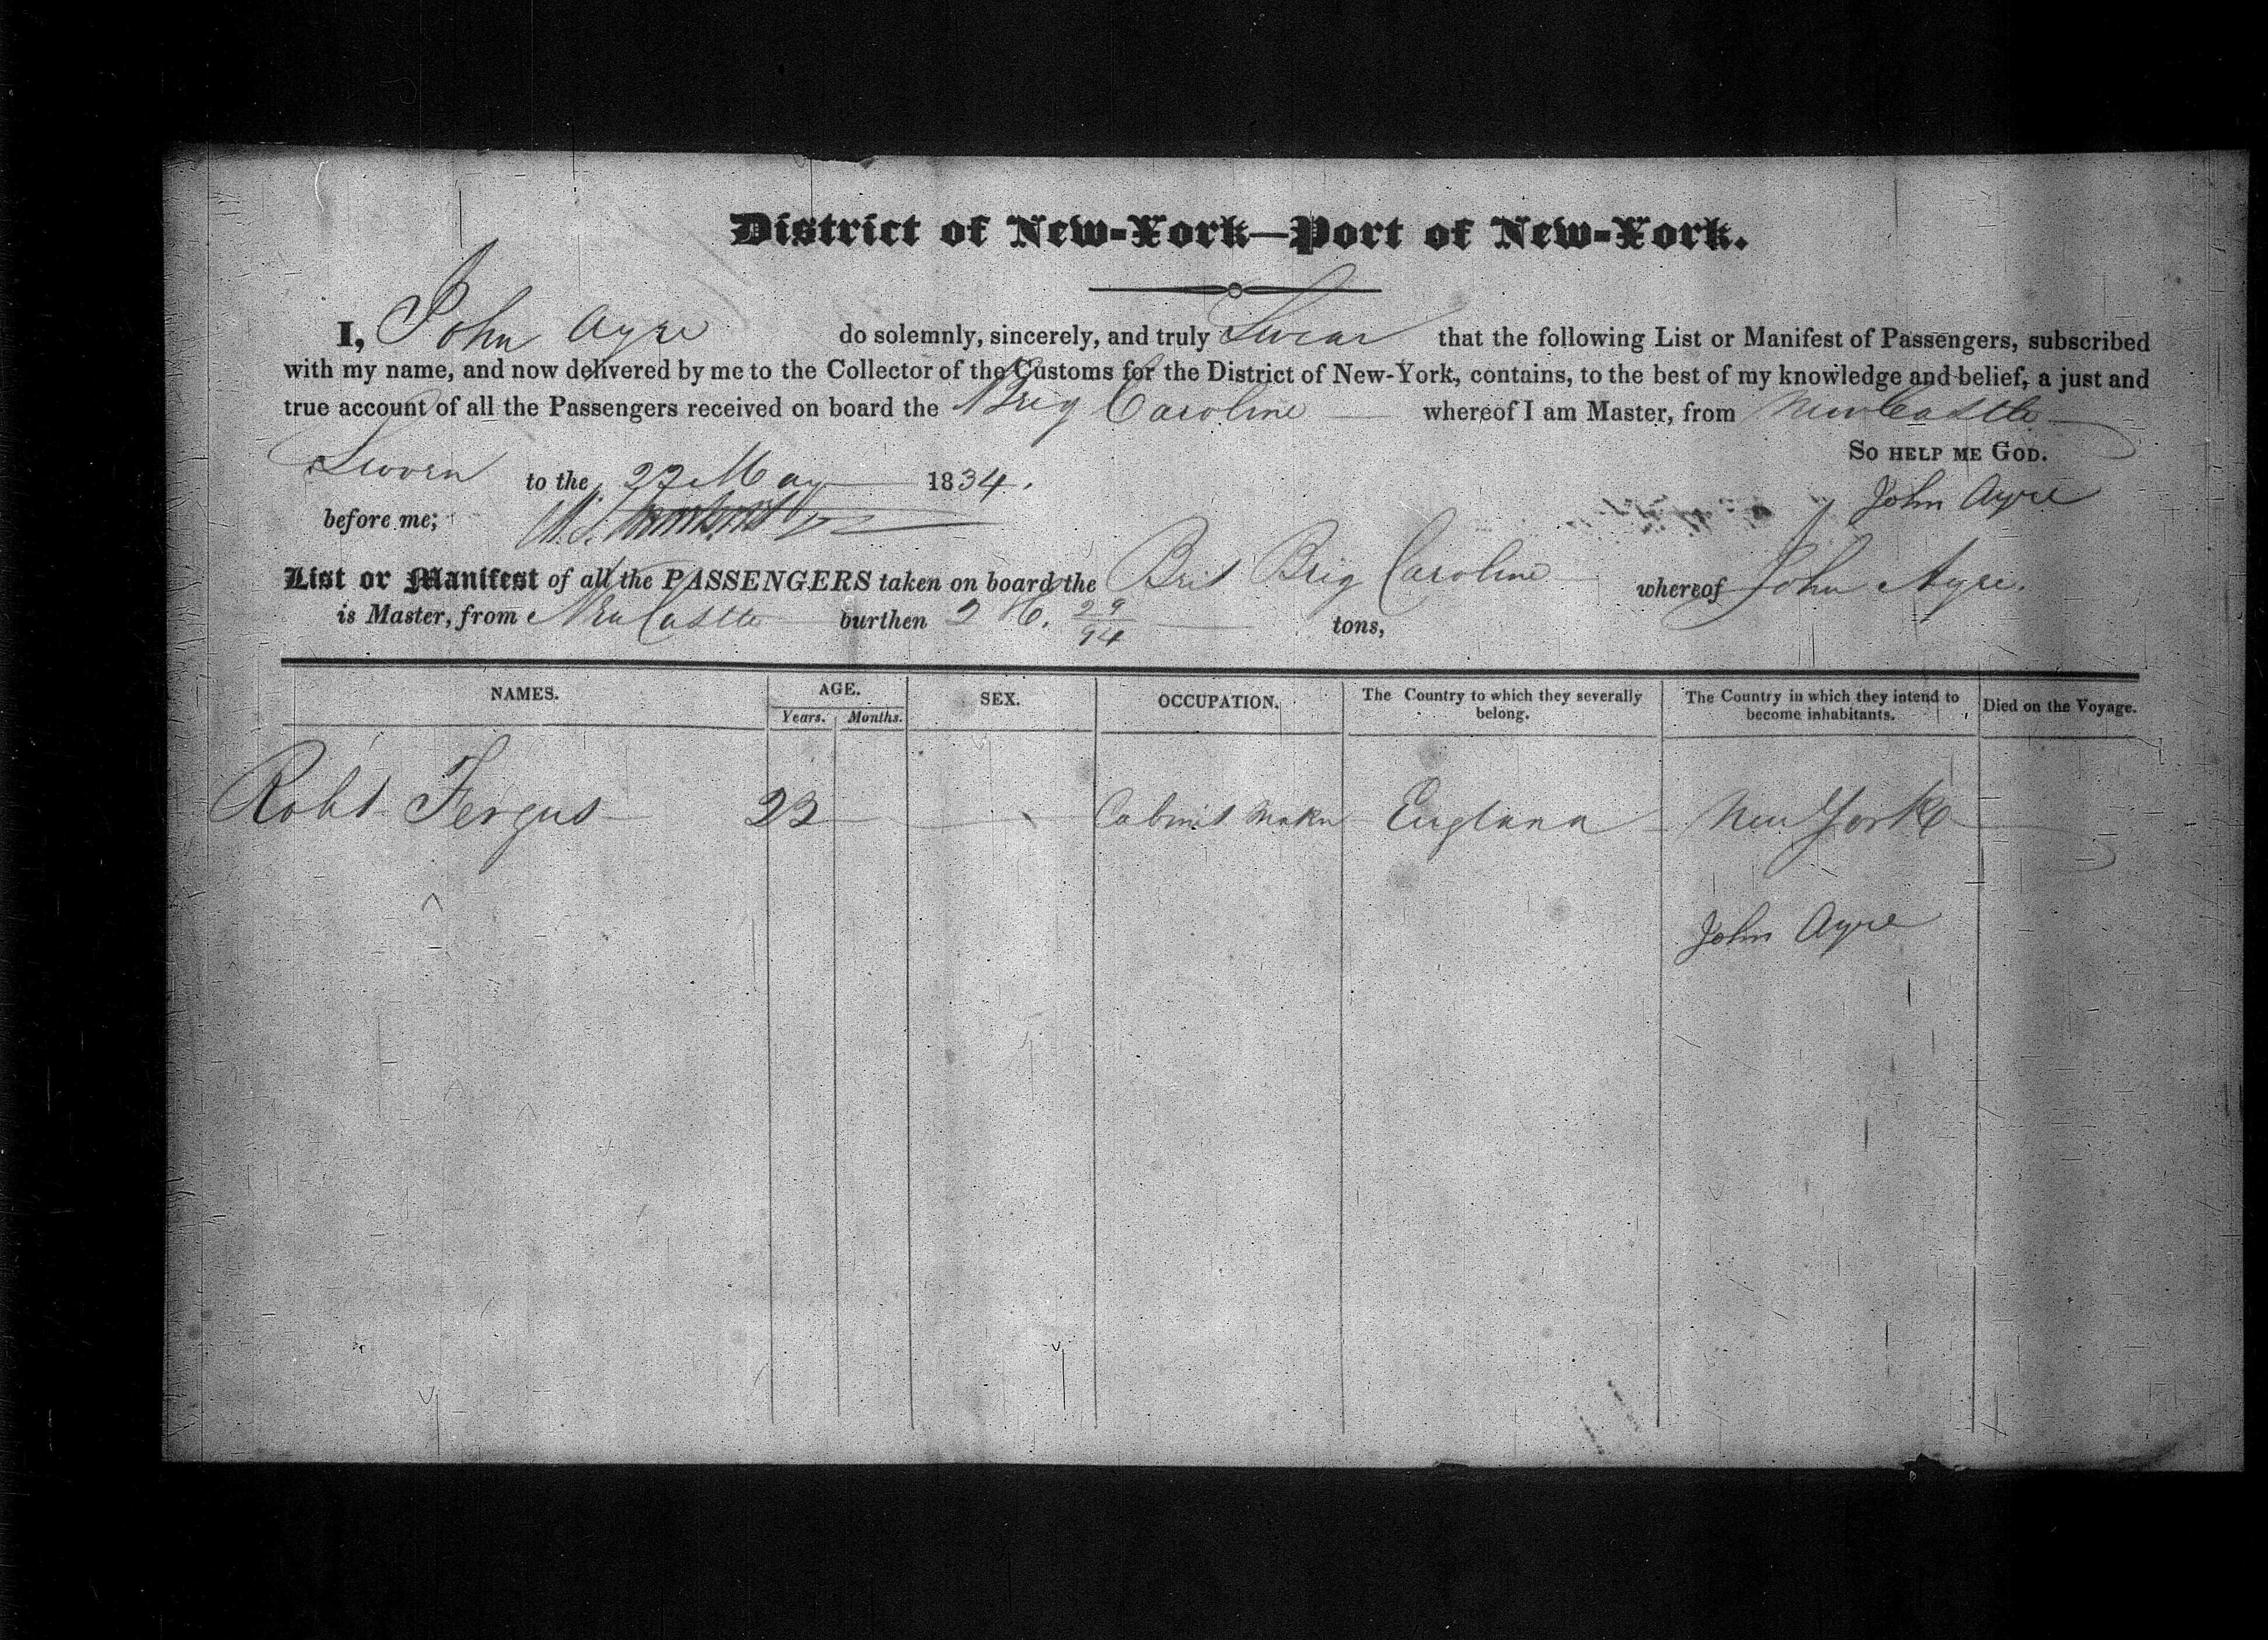 District of New-York—Port of New-York.
I, John Ayre do solemnly, sincerely, and truly Swear that the following List or Manifest of Passengers, subscribed
with my name, and now delivered by me to the Collector of the Customs for the District of New-York, contains, to the best of my knowledge and belief, a just and
true account of all the Passengers received on board the Brig Caroline whereof I am Master, from NewCastle
SO HELP ME GOD.
Sworn to the 27 May 1834.
John Ayre
before me;
List or Manifest of all the PASSENGERS taken on board the Brit Brig Caroline whereof John Ayre.
is Master, from NewCastle burthen 29/94 tons,
NAMES. AGE. SEX. OCCUPATION. The Country to which they severally belong. The Country in which they intend to become inhabitants. Died on the Voyage.
Years. Months.
Robt Fergus 23 Cabinet Maker England New York
John Ayre